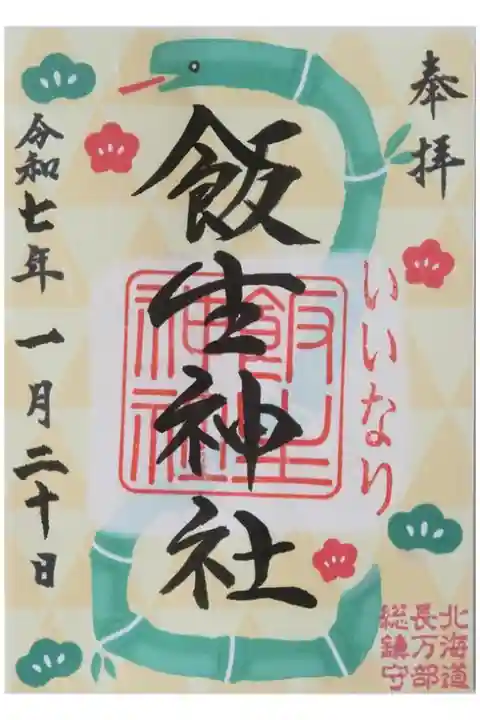 奉拝
いいなり
北海道
長万部
総鎮守
飯生神社
飯生
神社
令和七年 一月二十日